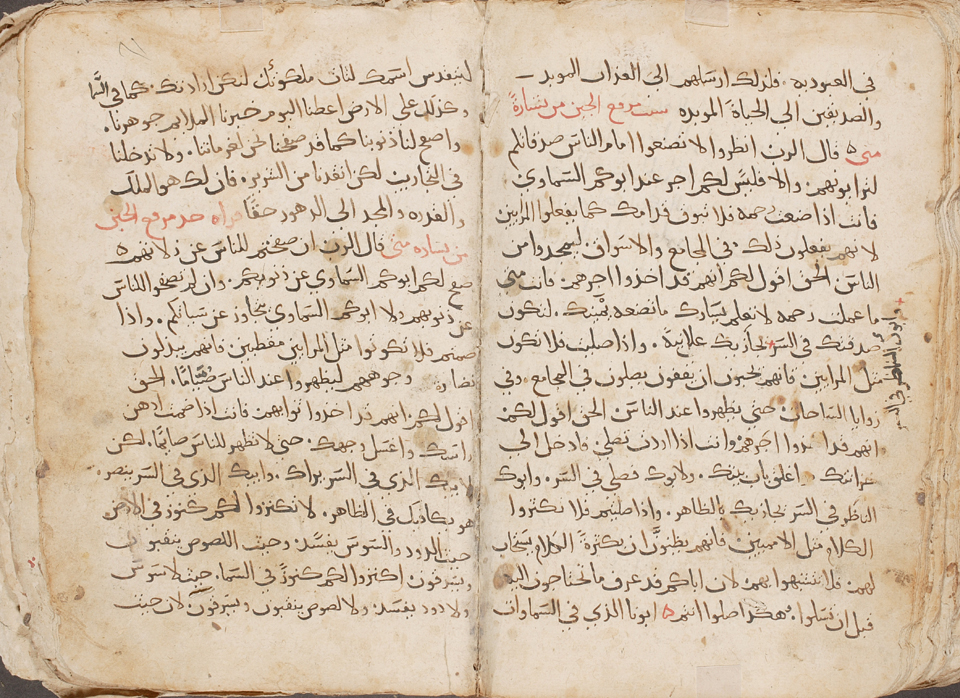 في العبودية فلذلك ارسلهم الى العذاب الموبد
والصديقين الى الحياة الموبده سبت مرفع الجبن من بشارة
متى قال الرب انظروا لا تصنعوا امام الناس صدقاتكم
لتراىونهم والا فليس لكم اجر عند ابوكم السماوي
فانت اذا صنعت رحمه فلا تبوق قدامك كما يفعلوا المرايين
لانهم يفعلون ذلك في المجامع والاسواق ليمجدوا من
الناس الحق اقول لكم انهم قد اخذوا اجرهم فانت متى
ما عملت رحمه لا تعلم يسارك ما تصنعه يمينك لتكون
صدقتك في السر + يجازيك علانية واذا صليت فلا تكون
مثل المرايين فانهم يحبون ان يقفون يصلون في المجامع وفي
زوايا الساحات حتى يظهروا عند الناس الحق اقول لكم
انهم قد اخذوا اجرهم وانت اذا اردت تصلي فادخل الى
خزانتك اغلق بابك ولابوك فصلي في السر وابوك
الناظر في السر يجازيك بالظاهر واذا صليتم فلا تكثروا
الكلام مثل الامميين فانهم يظنون ان بكثرة الكلام يستجاب
لهم فلا تتشبهوا بهم لان اباكم قد عرف ما تحتاجون اليه
قبل ان تسلوا هكذا صلوا انتم ابونا الذي في السماوات
+ وابوك الناظر في السر
ليتقدس اسمك لتات ملكوتك لتكن ارادتك كما في السما
وكذلك على الارض اعطنا اليوم خبزنا الملايم جوهرنا
واصفح لنا ذنوبنا كما قد صفحنا نحن لغرماينا ولا تدخلنا
في التجاريب لكن انقذنا من الشرير فان لك هو الملك
والقدره والمجد الى الدهور حقا قراه حد مرفع الجبن
من بشاره متى قال الرب ان صفحتم للناس عن زلاتهم
صفح لكم ابوكم السماوي عن ذنوبكم وان لم تصفحوا للناس
عن ذنوبهم ولا ابوكم السماوي يتجاوز عن سياتكم واذا
صمتم فلا تكونوا مثل المرايين مقطبين فانهم يبدلون
نضارة وجوههم ليظهروا عند الناس صيامًا الحق
اقول لكم انهم قد اخذوا ثوابهم فانت اذا صمت ادهن
راسك واغسل وجهك حتى لا تظهر للناس صايمًا لكن
لابيك الذي في السر يراك وابيك الذي في السر ينصره
هو يكافيك في الظاهر لا تكنزوا لكم كنوز في الارض
حيث الدود والسوس يفسد وحيث اللصوص ينقبون
ويسرقون اكنزوا لكم كنوزً في السما حيث لا سوس
ولا دود يفسد ولا لصوص ينقبون ويسرقون لان حيث